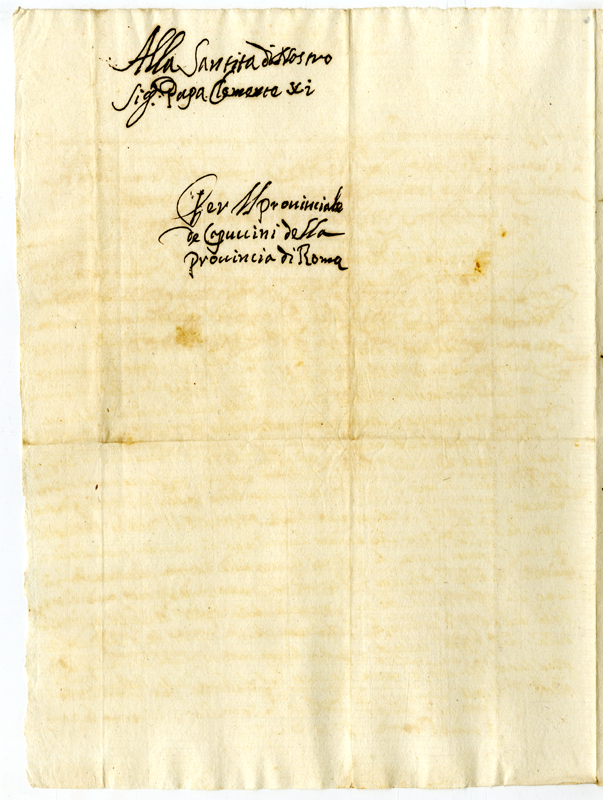 Alla Santità di Nostro
Sig.re Papa Clemente XI
Per Il Prouinciale
de Capuccini della
Prouincia di Roma